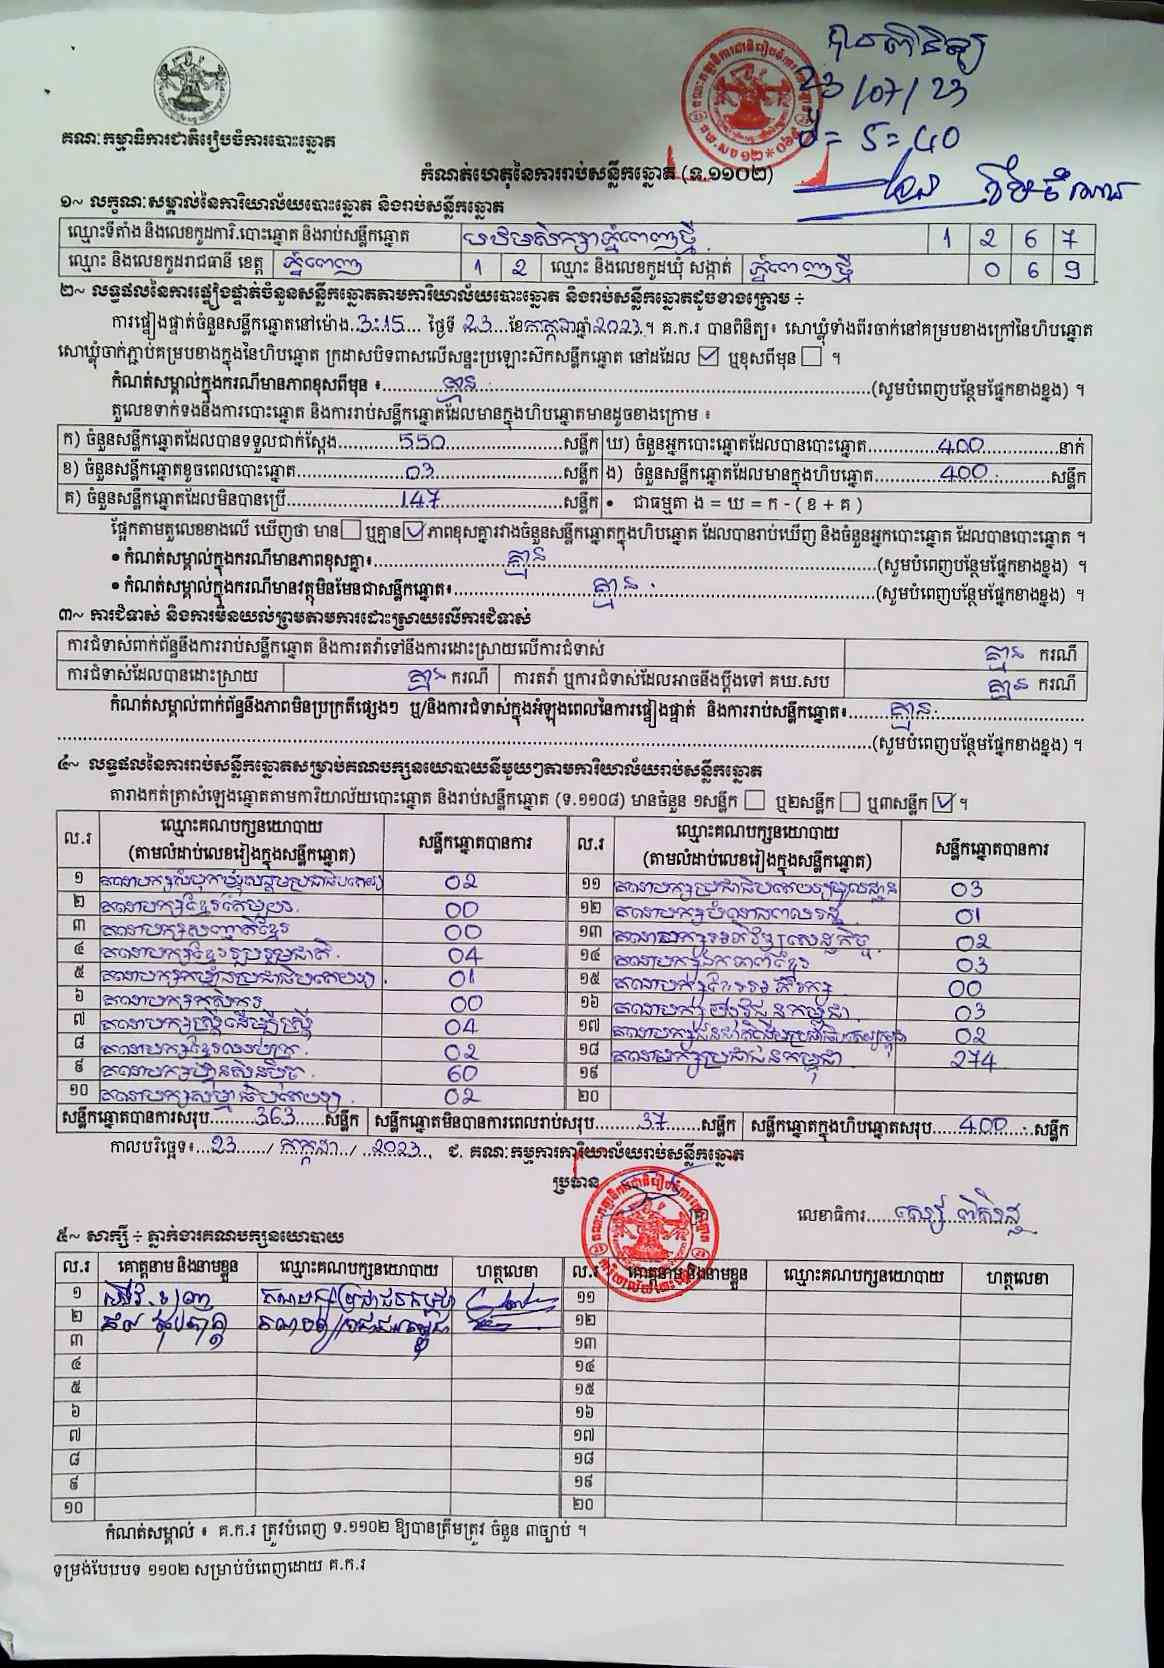 បានពិនិត្យ
23/07/23
ម៉ = 5 = 40
គណៈកម្មាធិការជាតិរៀបចំការបោះឆ្នោត
កំណត់ហេតុនៃការរាប់សន្លឹកឆ្នោត (ទ.១១០២)
១~ លក្ខណៈសម្គាល់នៃការិយាល័យបោះឆ្នោត និងរាប់សន្លឹកឆ្នោត
ឈ្មោះទីតាំង និងលេខកូដការិ.បោះឆ្នោត និងរាប់សន្លឹកឆ្នោត បឋមសិក្សាភ្នំពេញថ្មី 1 2 6 7
ឈ្មោះ និងលេខកូដរាជធានី ខេត្ត ភ្នំពេញ 1 2 ឈ្មោះ និងលេខកូដឃុំ សង្កាត់ ភ្នំពេញថ្មី 0 6 9
២~ លទ្ធផលនៃការផ្ទៀងផ្ទាត់ចំនួនសន្លឹកឆ្នោតតាមការិយាល័យបោះឆ្នោត និងរាប់សន្លឹកឆ្នោតដូចខាងក្រោម ÷
ការផ្ទៀងផ្ទាត់ចំនួនសន្លឹកឆ្នោតនៅម៉ោង..3:15... ថ្ងៃទី 23...ខែកក្កដាឆ្នាំ2023.។ គ.ក.រ បានពិនិត្យ៖ សោឃ្លុំទាំងពីរចាក់នៅគម្របខាងក្រៅនៃហិបឆ្នោត
សោឃ្លុំចាក់ភ្ជាប់គម្របខាងក្នុងនៃហិបឆ្នោត ក្រដាសបិទពាសលើសន្ទះប្រឡោះស៊កសន្លឹកឆ្នោត នៅដដែល ☑ ឬខុសពីមុន ☐ ។
កំណត់សម្គាល់ក្នុងករណីមានភាពខុសពីមុន ៖ គ្មាន (សូមបំពេញបន្ថែមផ្នែកខាងខ្នង) ។
តួលេខទាក់ទងនឹងការបោះឆ្នោត និងការរាប់សន្លឹកឆ្នោតដែលមានក្នុងហិបឆ្នោតមានដូចខាងក្រោម ៖
ក) ចំនួនសន្លឹកឆ្នោតដែលបានទទួលជាក់ស្តែង 550 សន្លឹក ឃ) ចំនួនអ្នកបោះឆ្នោតដែលបានបោះឆ្នោត 400 នាក់
ខ) ចំនួនសន្លឹកឆ្នោតខូចពេលបោះឆ្នោត 03 សន្លឹក ង) ចំនួនសន្លឹកឆ្នោតដែលមានក្នុងហិបឆ្នោត 400 សន្លឹក
គ) ចំនួនសន្លឹកឆ្នោតដែលមិនបានប្រើ 147 សន្លឹក • ជាធម្មតា ង = ឃ = ក - ( ខ + គ )
ផ្អែកតាមតួលេខខាងលើ ឃើញថា មាន ☐ ឬគ្មាន ☑ ភាពខុសគ្នារវាងចំនួនសន្លឹកឆ្នោតក្នុងហិបឆ្នោត ដែលបានរាប់ឃើញ និងចំនួនអ្នកបោះឆ្នោត ដែលបានបោះឆ្នោត ។
• កំណត់សម្គាល់ក្នុងករណីមានភាពខុសគ្នា៖ គ្មាន (សូមបំពេញបន្ថែមផ្នែកខាងខ្នង) ។
• កំណត់សម្គាល់ក្នុងករណីមានវត្ថុមិនមែនជាសន្លឹកឆ្នោត៖ គ្មាន (សូមបំពេញបន្ថែមផ្នែកខាងខ្នង) ។
៣~ ការជំទាស់ និងការមិនយល់ព្រមតាមការដោះស្រាយលើការជំទាស់
ការជំទាស់ពាក់ព័ន្ធនឹងការរាប់សន្លឹកឆ្នោត និងការតវ៉ាទៅនឹងការដោះស្រាយលើការជំទាស់ គ្មាន ករណី
ការជំទាស់ដែលបានដោះស្រាយ គ្មាន ករណី ការតវ៉ា ឬការជំទាស់ដែលអាចនឹងប្តឹងទៅ គឃ.សប គ្មាន ករណី
កំណត់សម្គាល់ពាក់ព័ន្ធនឹងភាពមិនប្រក្រតីផ្សេងៗ ឬ/និងការជំទាស់ក្នុងអំឡុងពេលនៃការផ្ទៀងផ្ទាត់ និងការរាប់សន្លឹកឆ្នោត៖ គ្មាន
(សូមបំពេញបន្ថែមផ្នែកខាងខ្នង) ។
៤~ លទ្ធផលនៃការរាប់សន្លឹកឆ្នោតសម្រាប់គណបក្សនយោបាយនីមួយៗតាមការិយាល័យរាប់សន្លឹកឆ្នោត
តារាងកត់ត្រាសំឡេងឆ្នោតតាមការិយាល័យបោះឆ្នោត និងរាប់សន្លឹកឆ្នោត (ទ.១១០៨) មានចំនួន ១សន្លឹក ☐ ឬ២សន្លឹក ☐ ឬ៣សន្លឹក ☑ ។
ល.រ ឈ្មោះគណបក្សនយោបាយ (តាមលំដាប់លេខរៀងក្នុងសន្លឹកឆ្នោត) សន្លឹកឆ្នោតបានការ ល.រ ឈ្មោះគណបក្សនយោបាយ (តាមលំដាប់លេខរៀងក្នុងសន្លឹកឆ្នោត) សន្លឹកឆ្នោតបានការ
១ គណបក្សសំបុកឃ្មុំសង្គមប្រជាធិបតេយ្យ 02 ១១ គណបក្សប្រជាធិបតេយ្យមូលដ្ឋាន 03
២ គណបក្សខ្មែរតែមួយ 00 ១២ គណបក្សបំណងពលរដ្ឋ 01
៣ គណបក្សសញ្ជាតិខ្មែរ 00 ១៣ គណបក្សអភិវឌ្ឍសេដ្ឋកិច្ច 02
៤ គណបក្សខ្មែររួបរួមជាតិ 04 ១៤ គណបក្សឯកភាពខ្មែរ 03
៥ គណបក្សកម្លាំងប្រជាធិបតេយ្យ 01 ១៥ គណបក្សខ្មែរអភិរក្ស 00
៦ គណបក្សកសិករ 00 ១៦ គណបក្សយុវជនកម្ពុជា 03
៧ គណបក្សស្ត្រីដើម្បីស្ត្រី 04 ១៧ គណបក្សជនជាតិដើមប្រជាធិបតេយ្យកម្ពុជា 02
៨ គណបក្សខ្មែរឈប់ក្រ 02 ១៨ គណបក្សប្រជាជនកម្ពុជា 274
៩ គណបក្សហ្វ៊ុនស៊ិនប៉ិច 60 ១៩
១០ គណបក្សសម្មាធិបតេយ្យ 02 ២០
សន្លឹកឆ្នោតបានការសរុប 363 សន្លឹក សន្លឹកឆ្នោតមិនបានការពេលរាប់សរុប 37 សន្លឹក សន្លឹកឆ្នោតក្នុងហិបឆ្នោតសរុប 400 សន្លឹក
កាលបរិច្ឆេទ៖ 23 / កក្កដា / 2023 ជ. គណៈកម្មការការិយាល័យរាប់សន្លឹកឆ្នោត
ប្រធាន
លេខាធិការ
៥~ សាក្សី ÷ ភ្នាក់ងារគណបក្សនយោបាយ
ល.រ គោត្តនាម និងនាមខ្លួន ឈ្មោះគណបក្សនយោបាយ ហត្ថលេខា ល.រ គោត្តនាម និងនាមខ្លួន ឈ្មោះគណបក្សនយោបាយ ហត្ថលេខា
១ គណបក្សប្រជាជនកម្ពុជា ១១
២ គណបក្សប្រជាជនកម្ពុជា ១២
៣ ១៣
៤ ១៤
៥ ១៥
៦ ១៦
៧ ១៧
៨ ១៨
៩ ១៩
១០ ២០
កំណត់សម្គាល់ ៖ គ.ក.រ ត្រូវបំពេញ ទ.១១០២ ឱ្យបានត្រឹមត្រូវ ចំនួន ៣ច្បាប់ ។
ទម្រង់បែបបទ ១១០២ សម្រាប់បំពេញដោយ គ.ក.រ